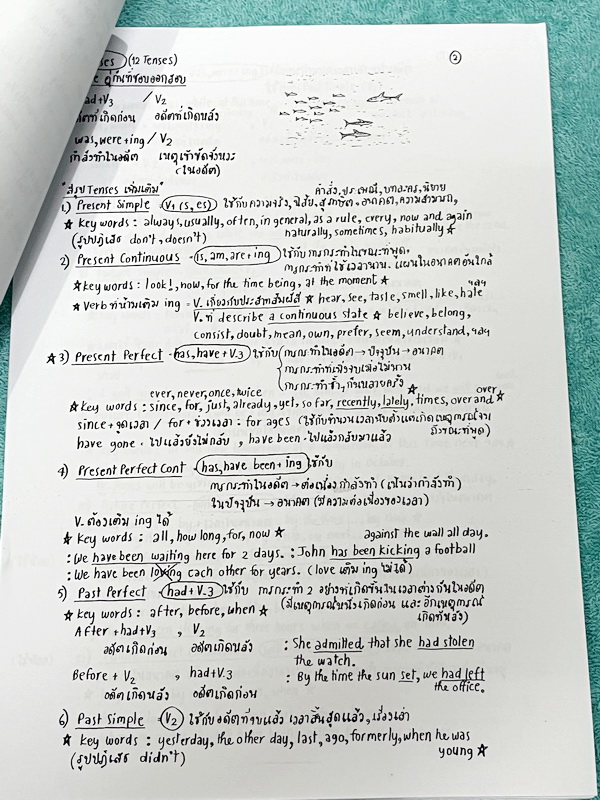 ②
ses (12 Tenses)
คู่กันที่ชอบออกสอบ
had+V3 / V2
อดีตที่เกิดก่อน อดีตที่เกิดหลัง
was, were+ing / V2
กำลังทำในอดีต เหตุเข้าขัดจังหวะ
(ในอดีต)
"สรุป Tenses เพิ่มเติม"
1) Present Simple - V1 (s, es) ใช้กับความจริง, นิสัย, อนาคต, ความสามารถ,
คำสั่ง, ประเพณี, บทละคร, นิยาย
★ Key words : always, usually, often, in general, as a rule, every, now and again
naturally, sometimes, habitually ★
(รูปปฏิเสธ don't, doesn't)
2) Present Continuous - is, am, are + ing ใช้กับการกระทำในขณะที่พูด,
การกระทำที่ใช้เวลานาน, แผนในอนาคตอันใกล้
★ Key words : look!, now, for the time being, at the moment ★
★ Verb ที่ห้ามเติม ing = V. เกี่ยวกับประสาทสัมผัส ★ hear, see, taste, smell, like, hate ฯลฯ
V. ที่ describe a continuous state ★ believe, belong,
consist, doubt, mean, own, prefer, seem, understand, ฯลฯ
★ 3) Present Perfect - has, have + V.3 ใช้กับ การกระทำในอดีต → ปัจจุบัน → อนาคต
การกระทำที่เพิ่งจบเมื่อไม่นาน
การกระทำซ้ำๆ กันหลายครั้ง
ever, never, once, twice
★ Key words : since, for, just, already, yet, so far, recently, lately, times, over and over ★
since + จุดเวลา / for + ช่วงเวลา : for ages (ใช้กับจำนวนเวลาจึงตั้งแต่เกิดเหตุการณ์จน
ถึงขณะที่พูด)
have gone - ไปแล้วยังไม่กลับ , have been - ไปแล้วกลับมาแล้ว
4) Present Perfect Cont - has, have been + ing ใช้กับ
การกระทำในอดีต → ต่อเนื่องกำลังทำ (เน้นว่ากำลังทำ)
ในปัจจุบัน → อนาคต (มีความต่อเนื่องของเวลา)
V. ต้องเติม ing ได้
★ Key words : all, how long, for, now ★
against the wall all day.
: We have been waiting here for 2 days. : John has been kicking a football
: We have been loving each other for years. (love เติม ing ไม่ได้)
5) Past Perfect - had + V.3 ใช้กับ การกระทำ 2 อย่างที่เกิดขึ้นในเวลาต่างกันในอดีต
(มีเหตุการณ์หนึ่งเกิดก่อน และอีกเหตุการณ์
เกิดทีหลัง)
★ Key words : after, before, when ★
After + had+V3 , V2
อดีตเกิดก่อน อดีตเกิดหลัง
: She admitted that she had stolen
the watch.
Before + V2 , had+V.3
อดีตเกิดหลัง อดีตเกิดก่อน
: By the time the sun set, we had left
the office.
6) Past Simple - V2 ใช้กับอดีตที่จบแล้ว เวลาสิ้นสุดแล้ว, เรื่องเล่า
★ Key words : yesterday, the other day, last, ago, formerly, when he was
young ★
(รูปปฏิเสธ didn't)